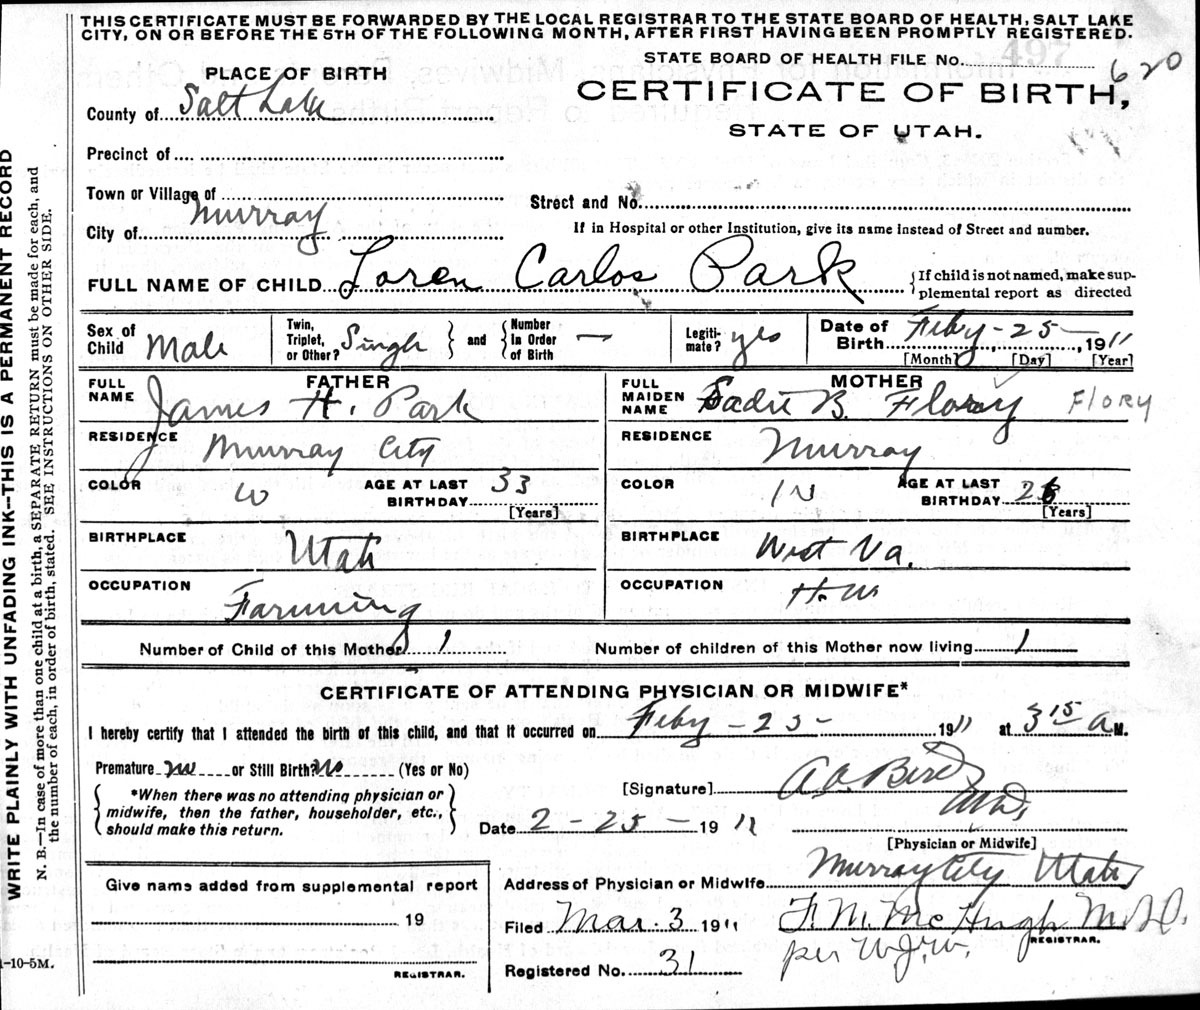 THIS CERTIFICATE MUST BE FORWARDED BY THE LOCAL REGISTRAR TO THE STATE BOARD OF HEALTH, SALT LAKE
CITY, ON OR BEFORE THE 5TH OF THE FOLLOWING MONTH, AFTER FIRST HAVING BEEN PROMPTLY REGISTERED.
STATE BOARD OF HEALTH FILE No. 497 620
PLACE OF BIRTH
CERTIFICATE OF BIRTH,
County of Salt Lake
STATE OF UTAH.
Precinct of
Town or Village of
Street and No.
City of Murray
If in Hospital or other Institution, give its name instead of Street and number.
FULL NAME OF CHILD Loren Carlos Park
{If child is not named, make sup-
plemental report as directed
Sex of Child Male
Twin, Triplet, or Other? Singh
and
Number In Order of Birth —
Legiti-mate? yes
Date of Birth Feby - 25 - 1911
[Month] [Day] [Year]
FATHER
FULL NAME James H. Park
MOTHER
FULL MAIDEN NAME Sadie B. Flory FLORY
RESIDENCE Murray City
RESIDENCE Murray
COLOR W
AGE AT LAST BIRTHDAY 33
[Years]
COLOR W
AGE AT LAST BIRTHDAY 26
[Years]
BIRTHPLACE Utah
BIRTHPLACE West Va.
OCCUPATION Farming
OCCUPATION H.W.
Number of Child of this Mother 1
Number of children of this Mother now living 1
CERTIFICATE OF ATTENDING PHYSICIAN OR MIDWIFE*
I hereby certify that I attended the birth of this child, and that it occurred on Feby - 25 - 1911 at 3 15 a M.
Premature no or Still Birth? no (Yes or No)
[Signature]
Bird
M.D.
*When there was no attending physician or
midwife, then the father, householder, etc.,
should make this return.
Date 2 - 25 - 1911
[Physician or Midwife]
Give name added from supplemental report
Address of Physician or Midwife Murray City Utah
19
Filed Mar. 3 1911
F. M. McHugh M.D.
REGISTRAR.
per W.J.W.
REGISTRAR.
Registered No. 31
1-10-5M.
WRITE PLAINLY WITH UNFADING INK—THIS IS A PERMANENT RECORD
N. B.—In case of more than one child at a birth, a SEPARATE RETURN must be made for each, and
the number of each, in order of birth, stated. SEE INSTRUCTIONS ON OTHER SIDE.